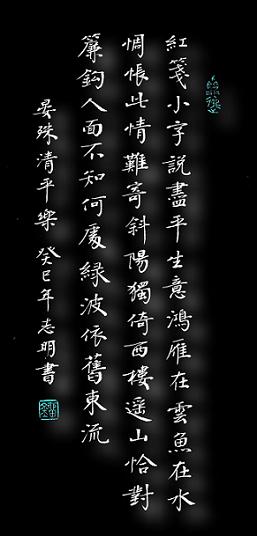 紅箋小字說盡平生意鴻雁在雲魚在水
惆悵此情難寄斜陽獨倚西樓遥山恰對
簾鈎人面不知何處綠波依舊東流
晏殊清平樂 癸巳年志明書